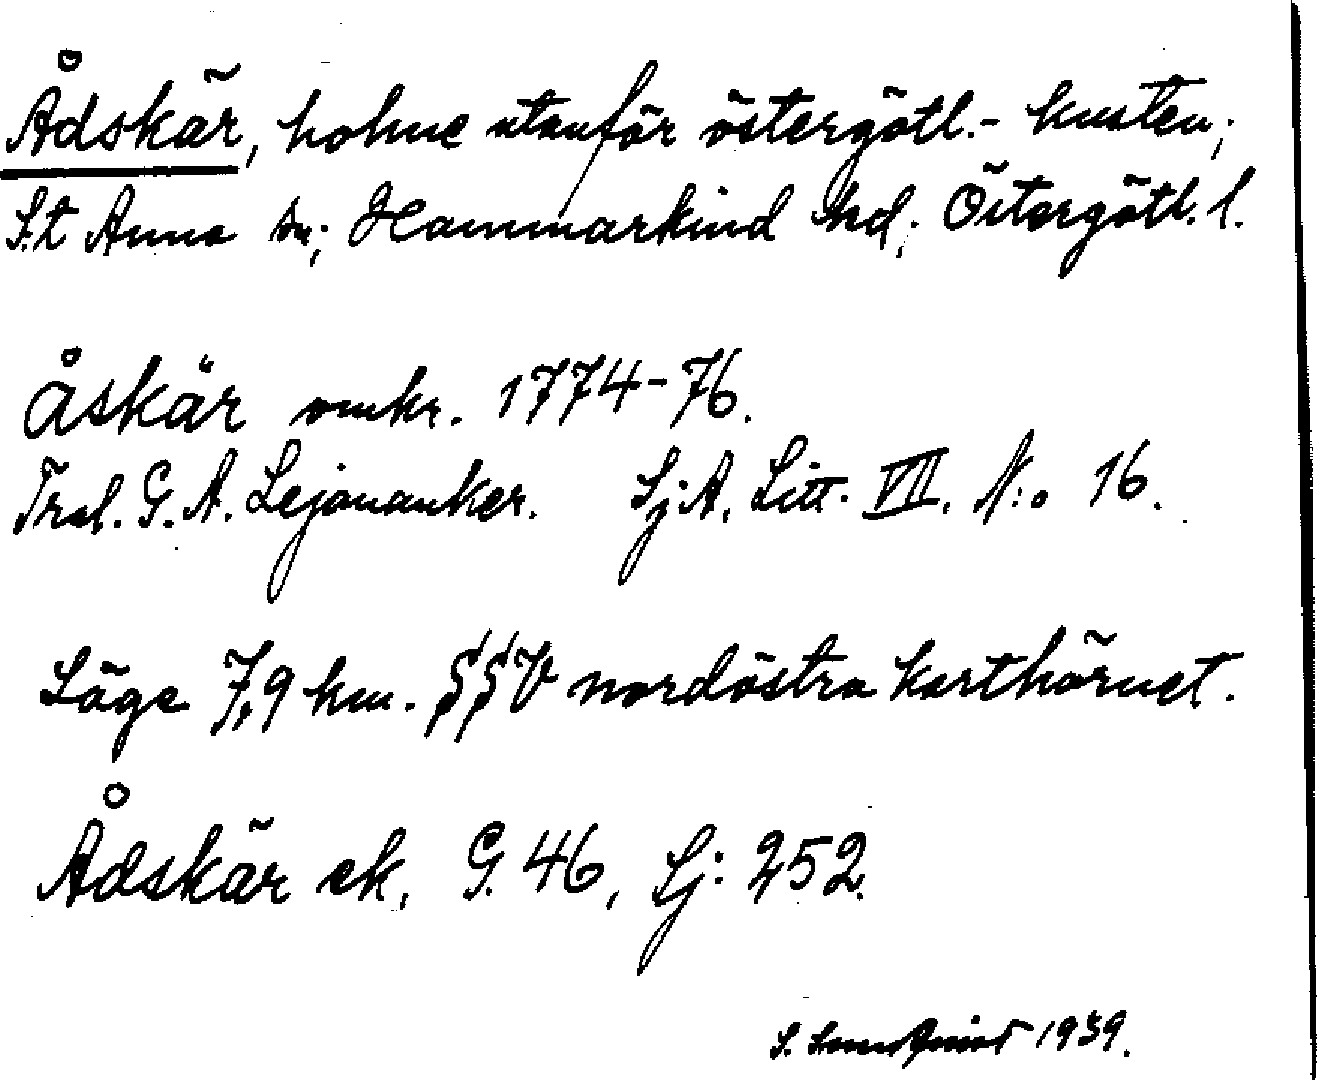 Ådskär, holme utanför östergötl.- kusten;
S:t Anna sn; Hammarkind hd; Östergötl. l.
Åskär omkr. 1774-76.
Tral. G. A. Lejonanker. Sj:A. Litt. VII. N:o 16.
Läge 7,9 km. SSV nordöstra karthörnet.
Ådskär ek. G. 46, Sj: 252.
S. 1939.